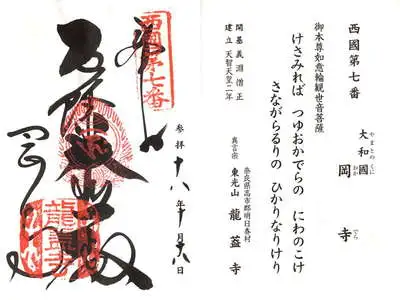 西國第七番
大和國 岡寺
やまとのくに おか でら
御本尊如意輪観世音菩薩
けさみれば つゆおかでらの にわのこけ
さながらるりの ひかりなりけり
開基 義淵僧正
建立 天智天皇二年
奈良県高市郡明日香村
真言宗 東光山 龍蓋寺
西國第七番
奉
参拝 十八年十月八日
龍蓋寺